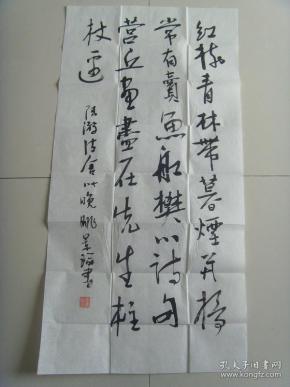 红树青林带暮烟并桥
常有卖鱼船樊川诗句
营丘画尽在先生柱
杖边
陆游诗舍外晚眺
书
孔夫子旧书网